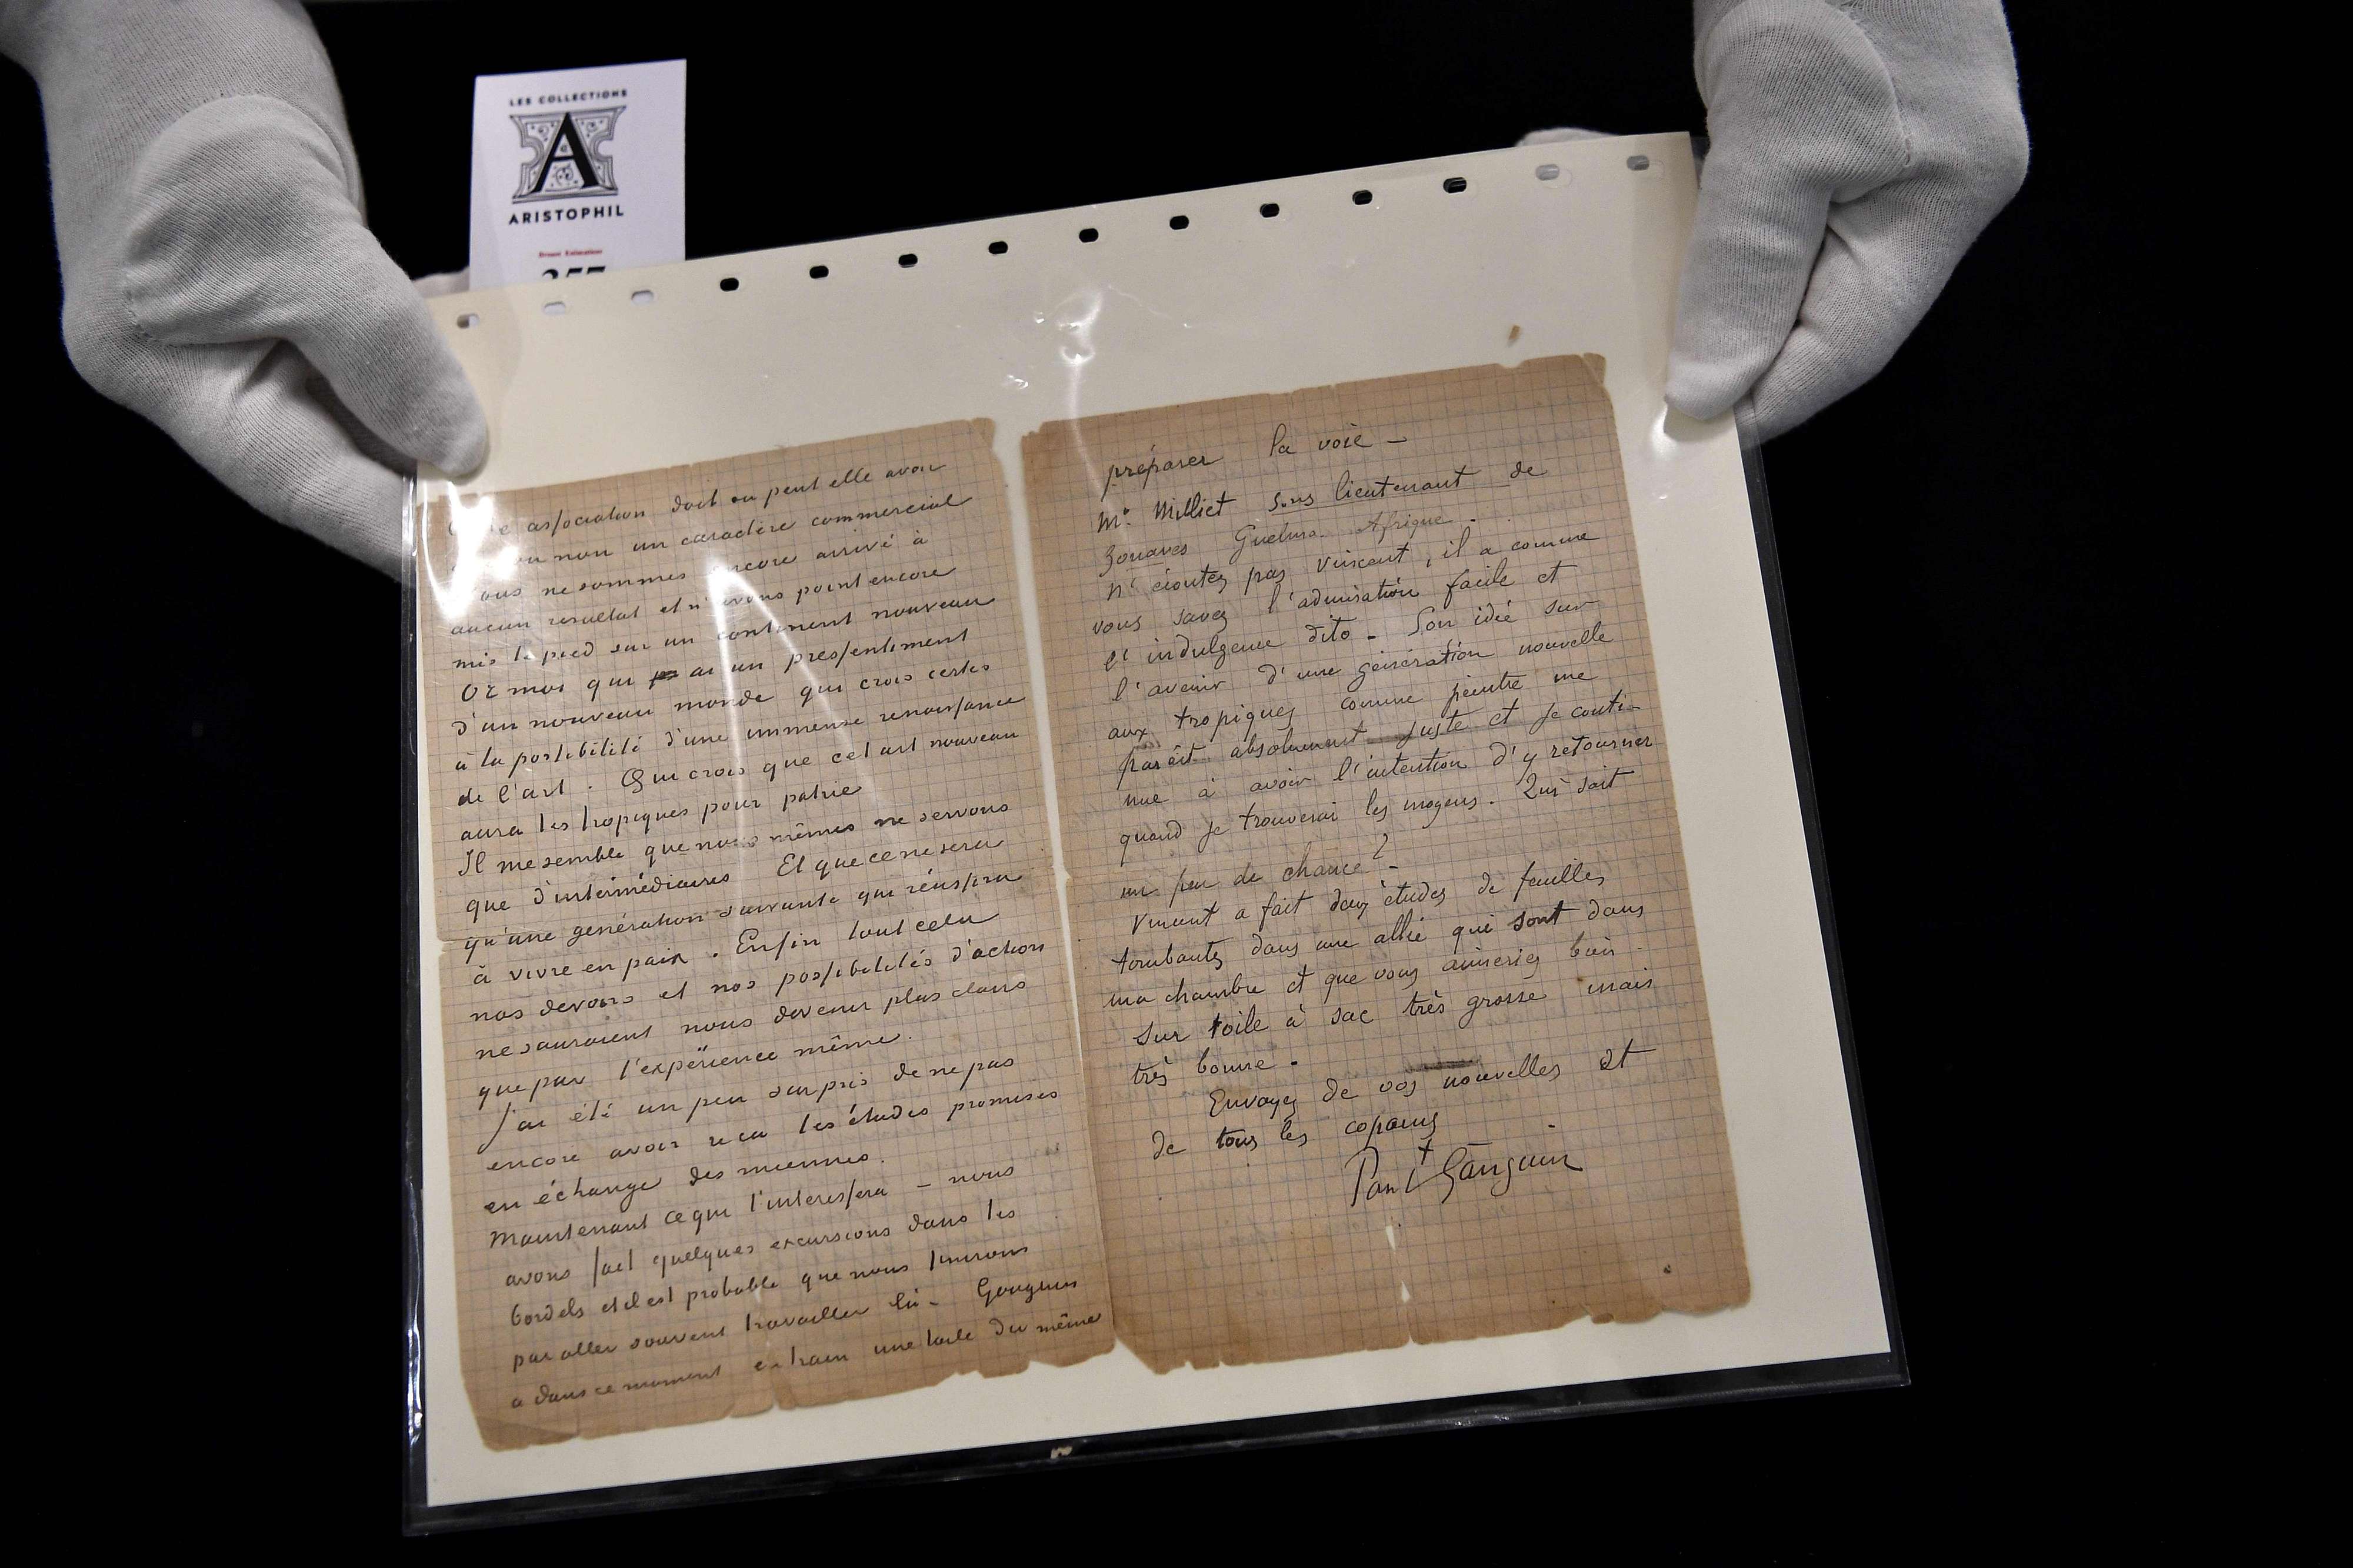 LES COLLECTIONS
A
ARISTOPHIL
357
association doit ou peut elle avoir
ou non un caractère commercial
nous ne sommes encore arrivé à
aucun resultat et n'avons point encore
mis le pied sur un continent nouveau
Or moi qui ai un pressentiment
d'un nouveau monde qui crois certes
à la possibilité d'une immense renaissance
de l'art. Qui crois que cet art nouveau
aura les tropiques pour patrie
Il me semble que nous mêmes ne servons
que d'intermédiaires Et que ce ne sera
qu'une generation suivante qui réussira
à vivre en paix. Enfin tout cela
nos devoirs et nos possibilités d'action
ne sauraient nous devenir plus clairs
que par l'expérience même.
J'ai été un peu surpris de ne pas
encore avoir recu les études promises
en échange des miennes.
Maintenant ce qui t'interessera – nous
avons fait quelques excursions dans les
bordels et il est probable que nous finirons
par aller souvent travailler là – Gauguin
a dans ce moment en train une toile du même
préparer la voie –
Mr. Milliet sous lieutenant de
zouaves Guelma Afrique.
N'écoutez pas Vincent, il a comme
vous savez l'admiration facile et
l'indulgence dito – Son idée sur
l'avenir d'une génération nouvelle
aux tropiques comme peintre me
paraît absolument juste et je conti-
nue à avoir l'intention d'y retourner
quand je trouverai les moyens. Qui sait
un peu de chance ? –
Vincent a fait deux études de feuilles
tombantes dans une allée qui sont dans
ma chambre et que vous aimeriez bien –
sur toile à sac très grosse mais
très bonne –
Envoyez de vos nouvelles et
de tous les copains
Paul Gauguin